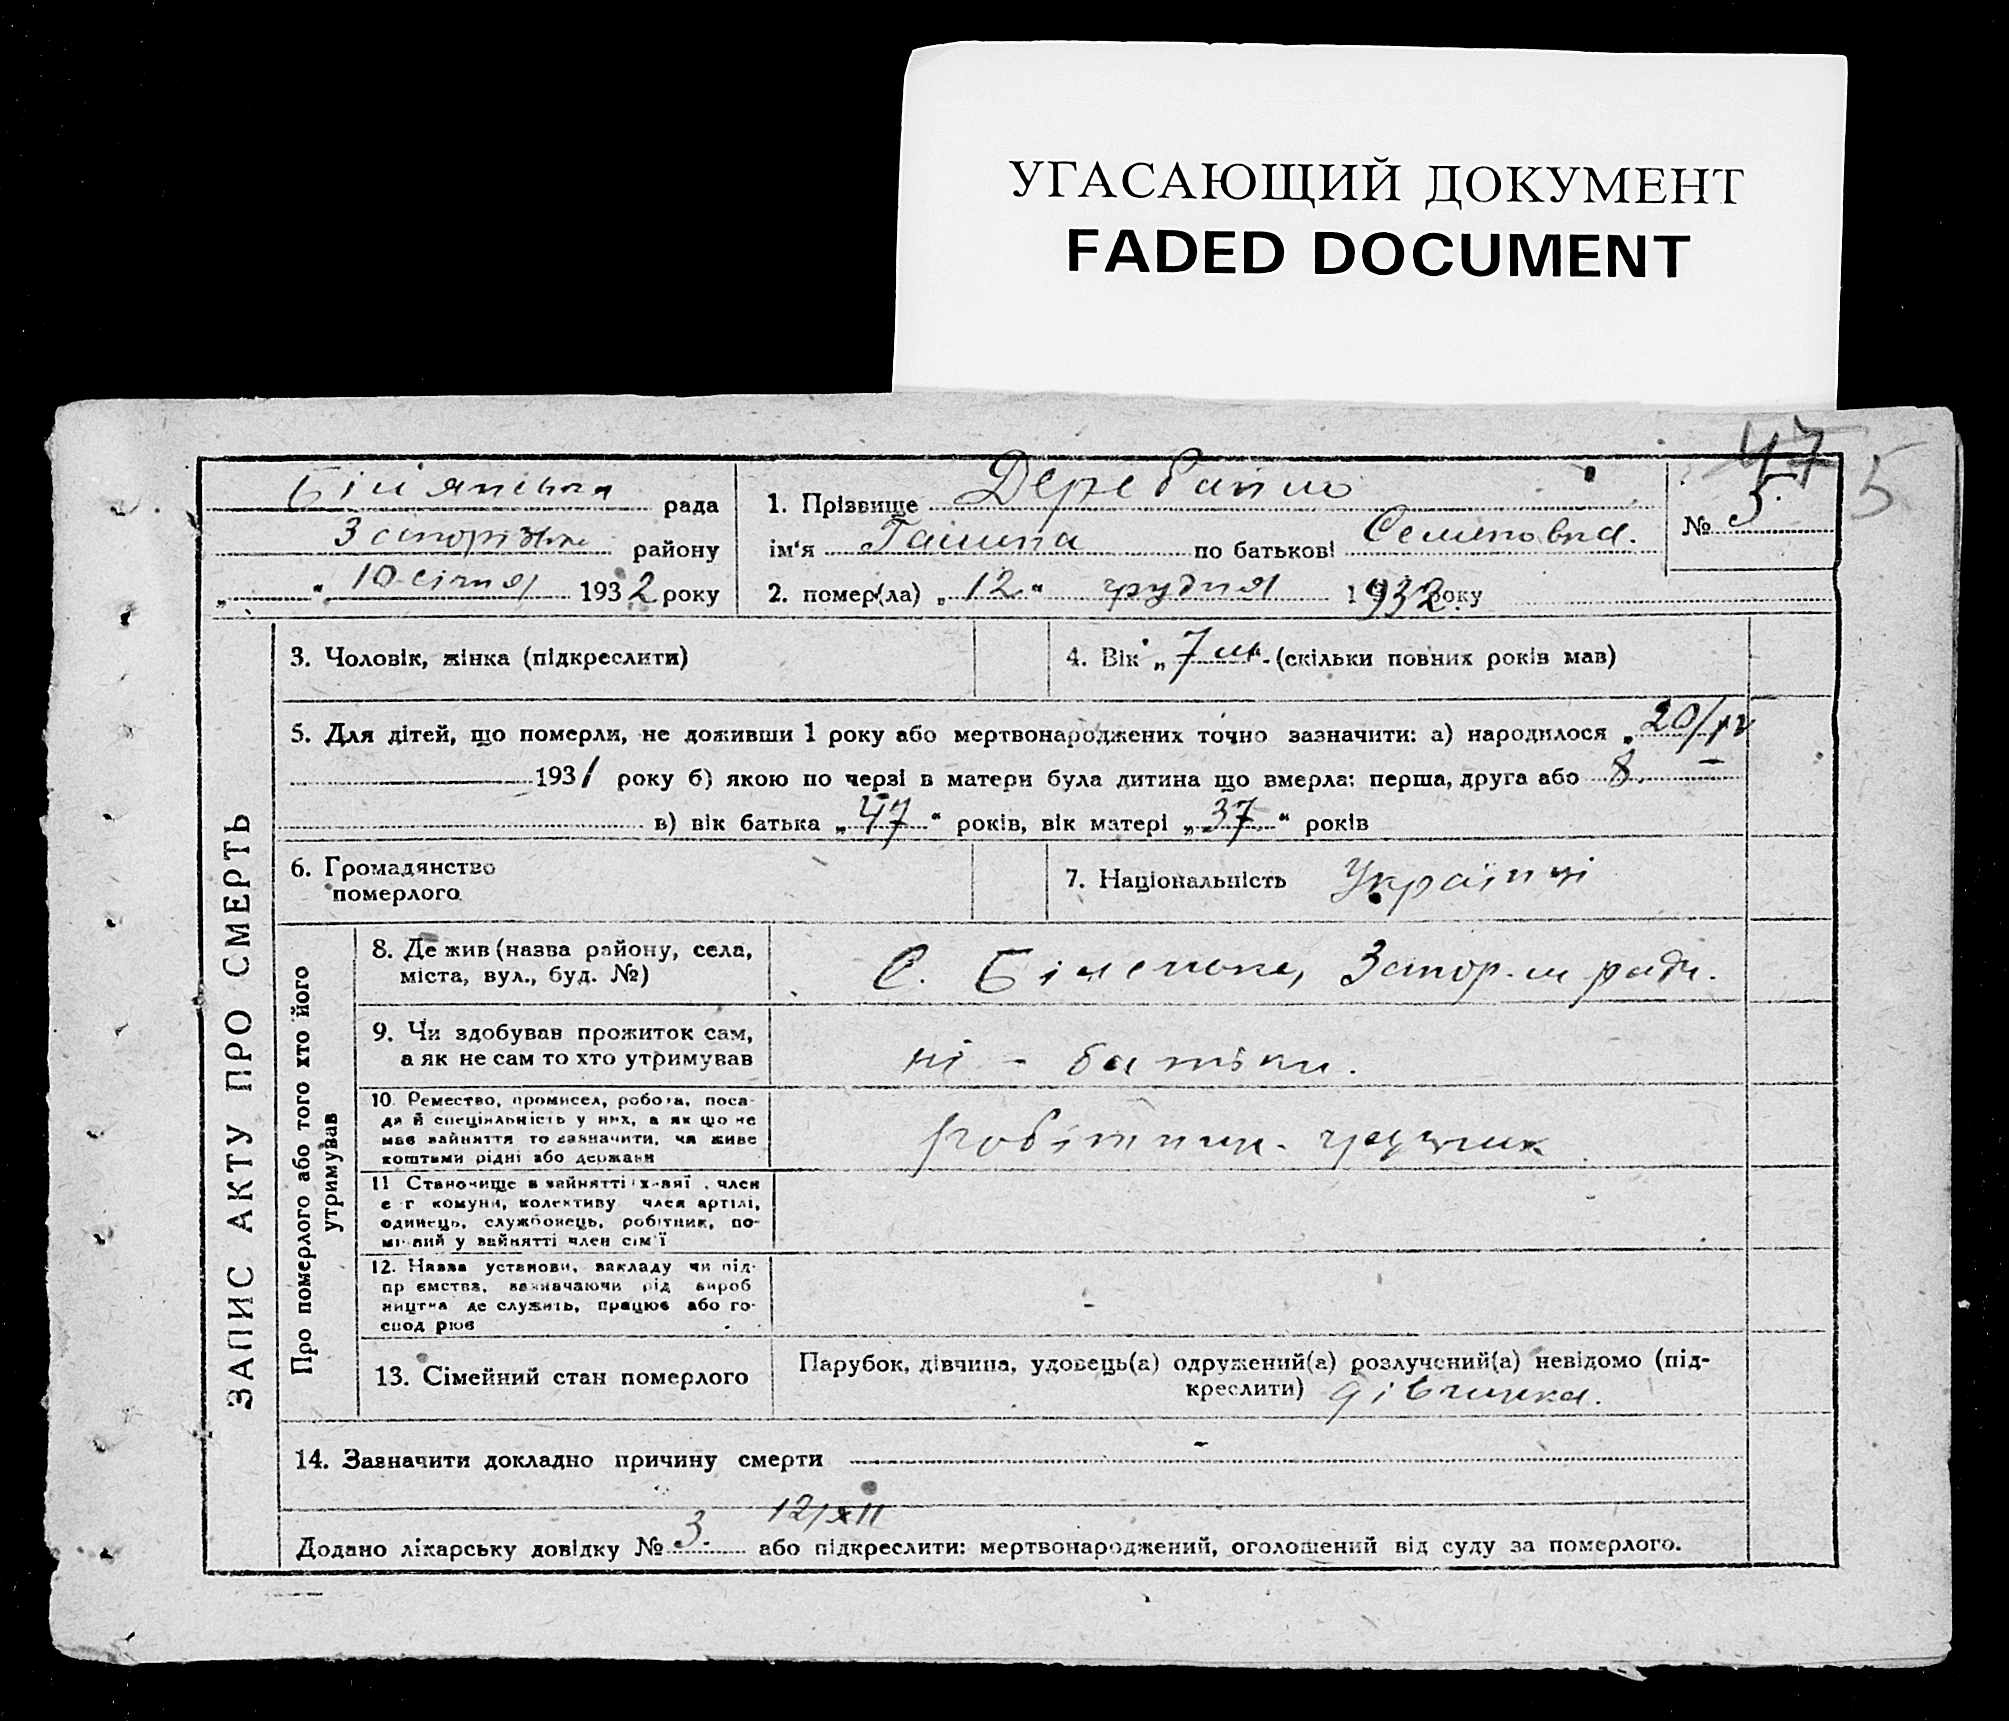 УГАСАЮЩИЙ ДОКУМЕНТ
FADED DOCUMENT
47 5
рада
району
„ “ 10 січня 1932 року
1. Прізвище Деребайло
ім'я Галина по батькові Семеновна.
№ 5.
2. помер(ла) „ 12 “ грудня 1932 року
ЗАПИС АКТУ ПРО СМЕРТЬ
3. Чоловік, жінка (підкреслити)
4. Вік „ 7 м. (скільки повних років мав)
5. Для дітей, що померли, не доживши 1 року або мертвонароджених точно зазначити: а) народилося „ 20/IV
1931 року б) якою по черзі в матери була дитина що вмерла: перша, друга або 8 –
в) вік батька „ 47 “ років, вік матері „ 37 “ років
6. Громадянство
померлого
7. Національність Українці
Про померлого або того хто його
утримував
8. Де жив (назва району, села,
міста, вул., буд. №)
С. Біленьке, Запор. ради.
9. Чи здобував прожиток сам,
а як не сам то хто утримував
ні - батьки.
10. Ремество, промисел, робота, поса-
да й спеціяльність у них, а як що не
має зайняття то зазначити, чи живе
коштами рідні або держави
робітник.
11 Становище в зайнятті член
с г комуни, колективу член артілі,
одинець, службовець, робітник, по-
у зайнятті член сім'ї
12. Назва установи, закладу чи під-
приємства, зазначаючи рід вироб
ництва де служить, працює або го-
подарює
13. Сімейний стан померлого
Парубок, дівчина, удовець(а) одружений(а) розлучений(а) невідомо (під-
креслити) дівчинка.
14. Зазначити докладно причину смерти
Додано лікарську довідку № 3. 12/XII або підкреслити: мертвонароджений, оголошений від суду за померлого.